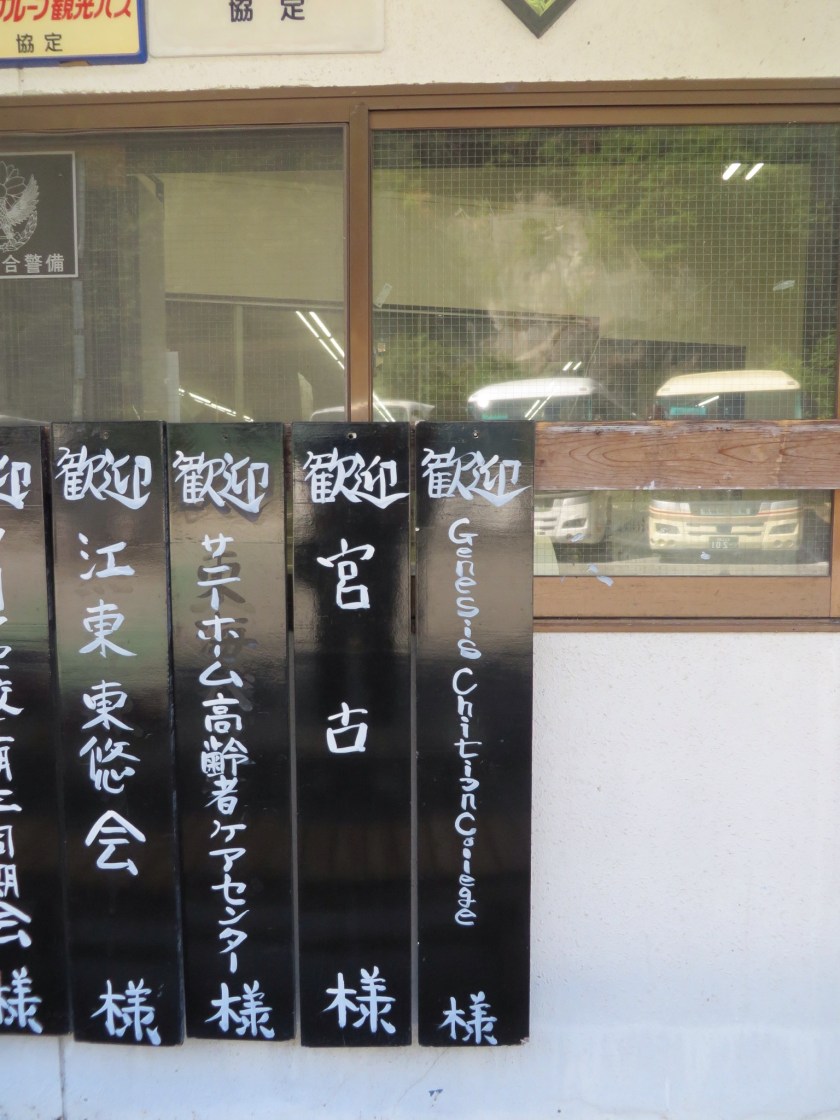 グループ観光バス
協定
協定
合警備
歓迎 Genesis Chitian College 様
歓迎 宮古 様
歓迎 サニーホーム高齢者ケアセンター 様
歓迎 江東東悠会 様
迎 会 様
105